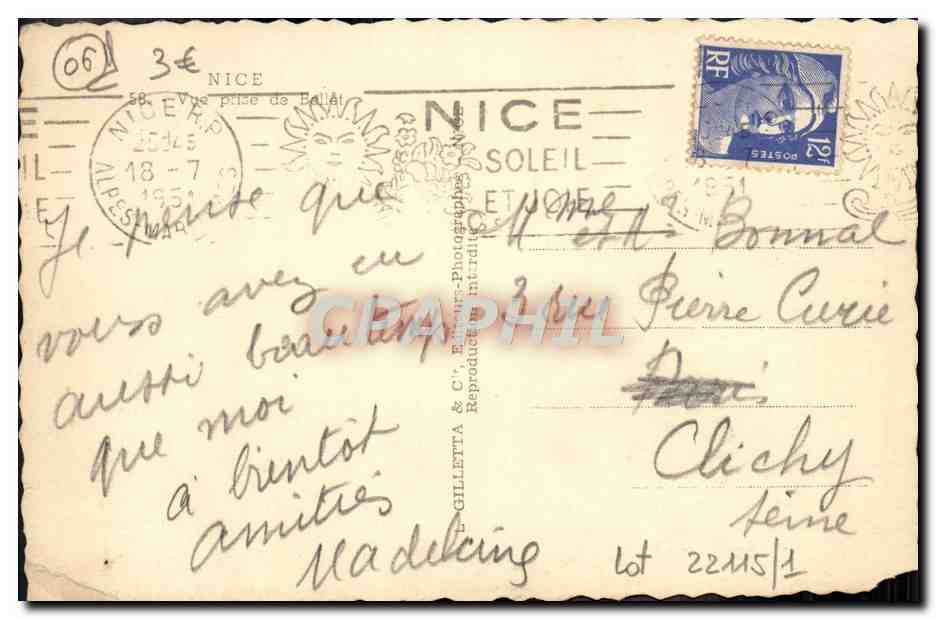 06
3€
NICE
58. - Vue prise de Bellet
NICE R.P.
18 - 7
1951
ALPES MAR
NICE
SOLEIL
ET JOIE
RF
12F
POSTES
1951
Je pense que
vous avez eu
aussi beau temps
que moi
à bientôt
amitiés
Madeleine
L. GILLETTA & Cie, Editeurs-Photographes, NICE
Reproduction interdite
CPAPHIL
Mme Bonnal
3 rue Pierre Curie
Paris
Clichy
Seine
Lot 22115/1